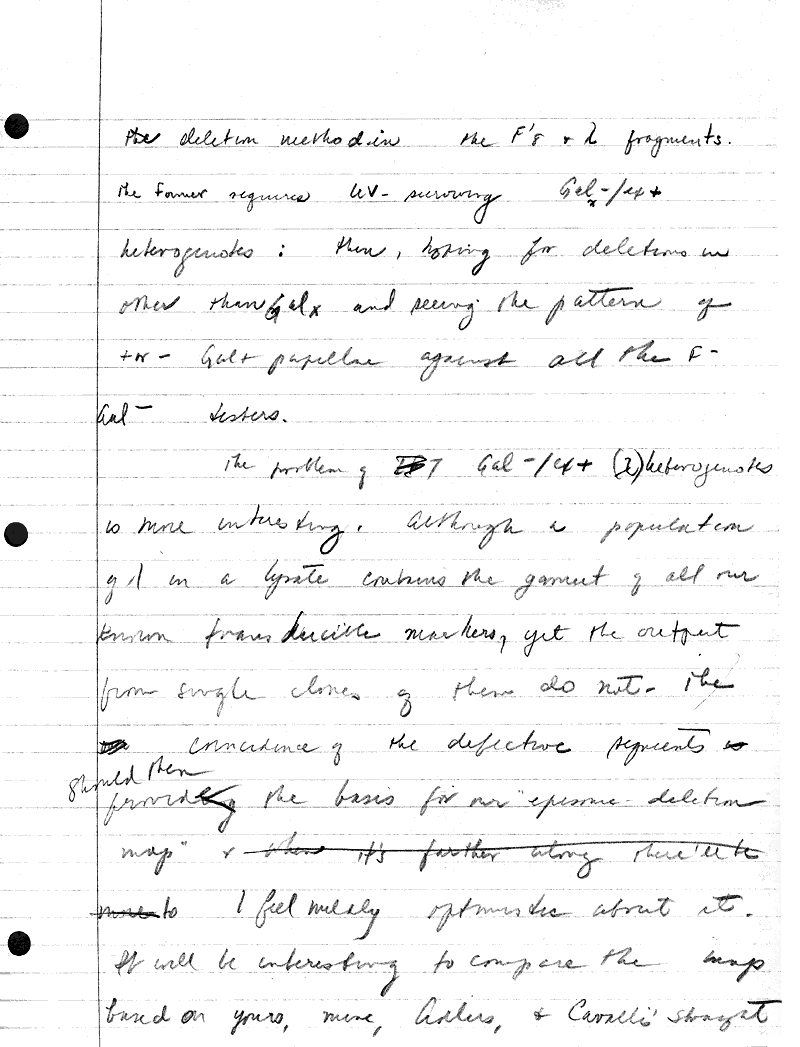 the deletion method in the F's + λ fragments.
the former requires UV- surviving Galx-/ex+
heterogenotes : then, hoping for deletions in
other than Galx and seeing the pattern of
+ or - Gal+ papillae against all the F-
Gal- testers.
The problem of Gal-/ex+ (λ) heterogenotes
is more interesting. Although a population
of λ in a lysate contains the gamut of all our
known transducible markers, yet the output
from single clones of them do not. The
coincidence of the defective segments
should then
provide the basis for our "episome-deletion
map" + when it's farther along there'll be
more to I feel mildly optimistic about it.
It will be interesting to compare the map
based on yours, mine, Adlers, + Cavalli's straight